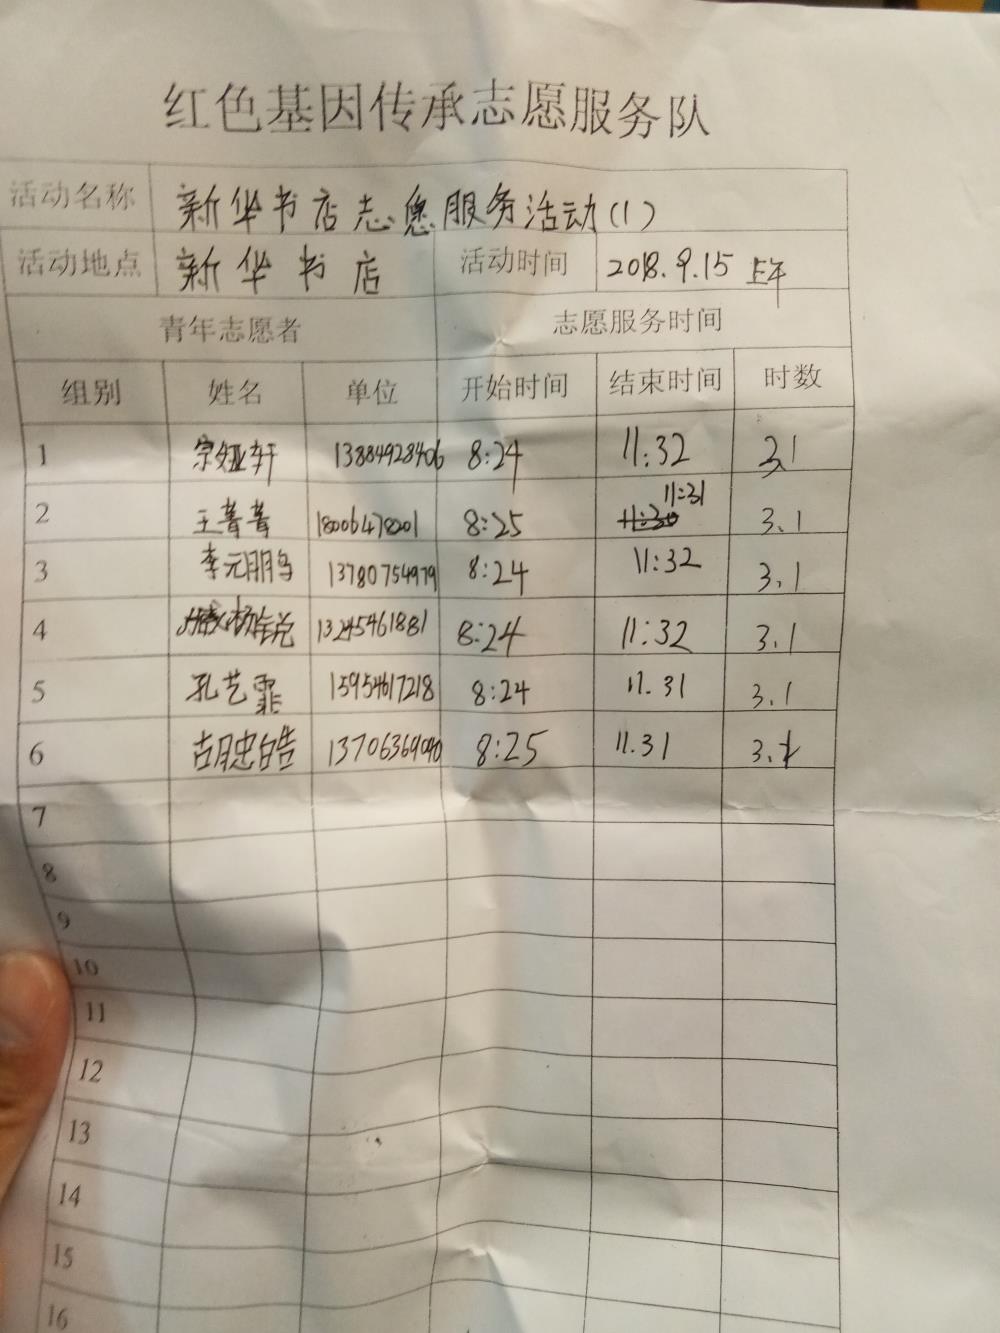 红色基因传承志愿服务队
活动名称 新华书店志愿服务活动(1)
活动地点 新华书店 活动时间 2018.9.15 上午
青年志愿者 志愿服务时间
组别 姓名 单位 开始时间 结束时间 时数
1 宗娅轩 13884928406 8:24 11:32 3.1
2 王菁菁 18006478001 8:25 11:31 3.1
3 李元鹏 13780754979 8:24 11:32 3.1
4 13245461881 8:24 11:32 3.1
5 孔艺霏 15954617218 8:24 11.31 3.1
6 胡忠皓 8:25 11.31 3.1
7
8
9
10
11
12
13
14
15
16